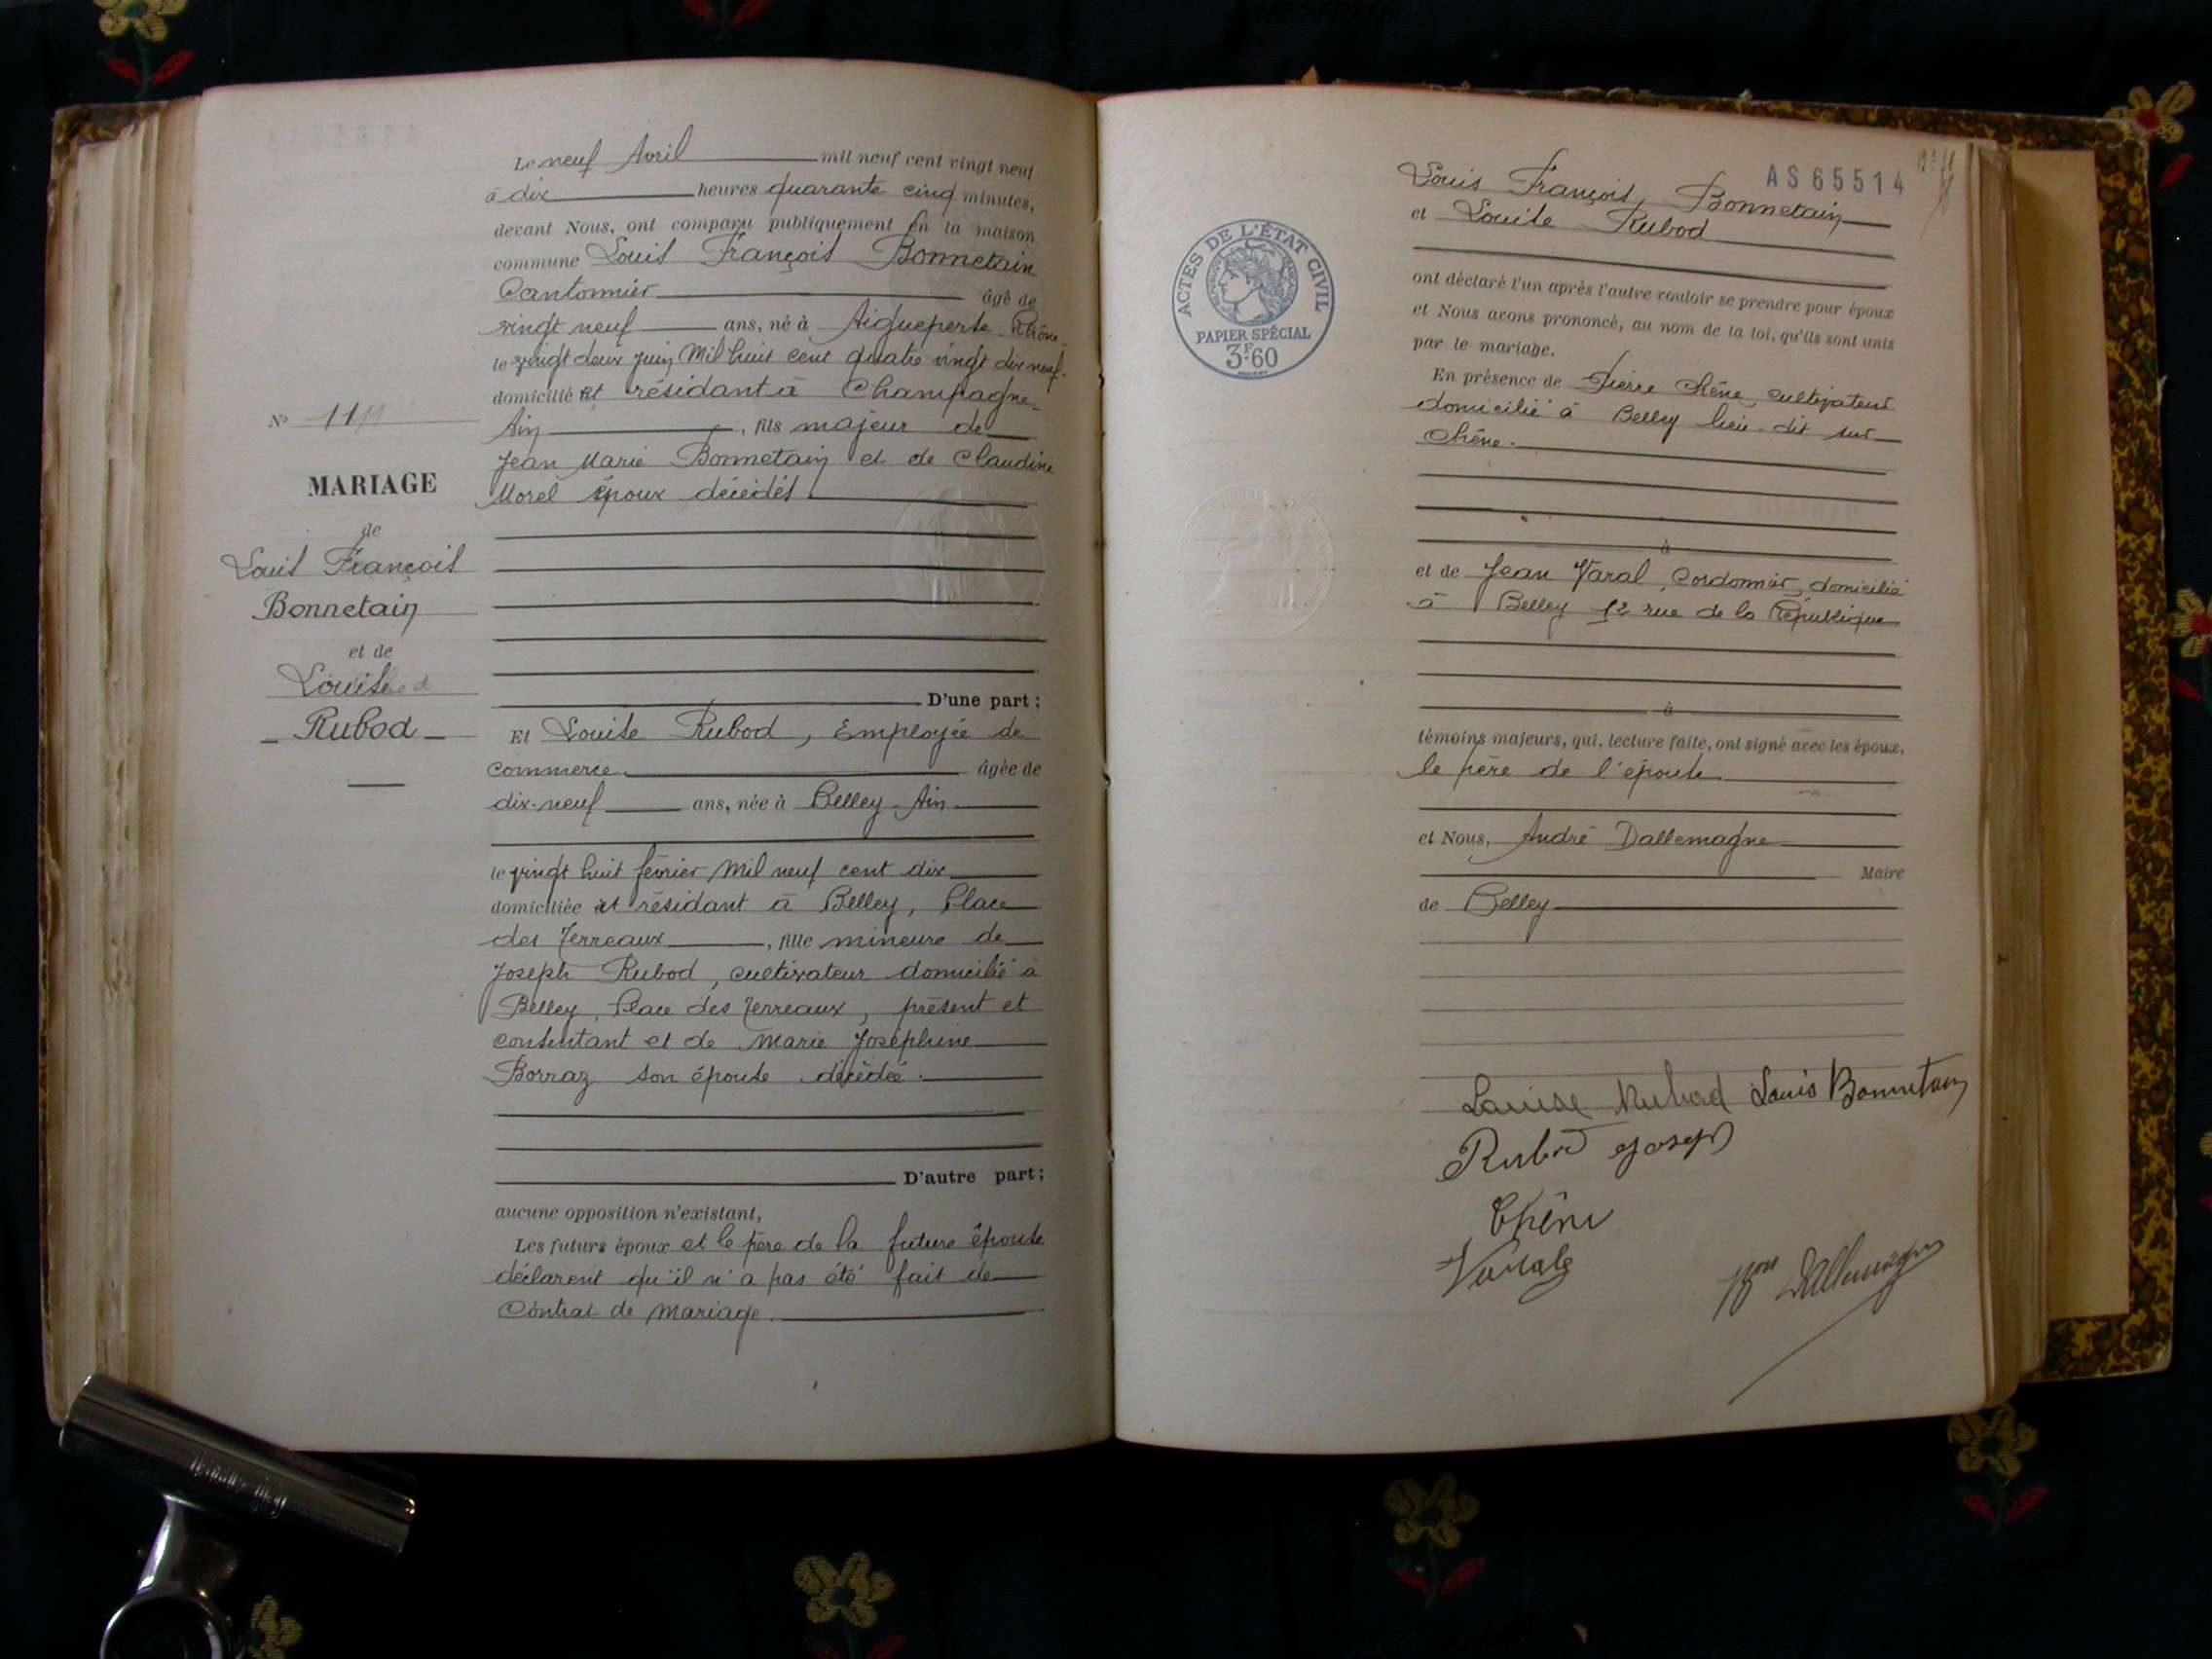 Le neuf Avril mil neuf cent vingt neuf
à dix heures quarante cinq minutes,
devant Nous, ont comparu publiquement en la maison
commune Louis François Bonnetain
Cantonnier âgé de
vingt neuf ans, né à Aigueperse Rhône
le vingt deux juin Mil huit cent quatre vingt dix neuf.
domicilié et résidant à Champagne
Ain, fils majeur de
Jean Marie Bonnetain et de Claudine
Morel époux décédés
D'une part;
Et Louise Rubod, Employée de
commerce âgée de
dix-neuf ans, née à Belley Ain
le vingt huit février Mil neuf cent dix
domiciliée et résidant à Belley, Place
des Terreaux, fille mineure de
Joseph Rubod, cultivateur domicilié à
Belley, Place des Terreaux, présent et
consentant et de Marie Joséphine
Borraz son épouse décédée.
D'autre part;
aucune opposition n'existant,
Les futurs époux et le père de la future épouse
déclarent qu'il n'a pas été fait de
Contrat de mariage.
N° 11
MARIAGE
de
Louis François
Bonnetain
et de
Louise
Rubod
AS65514
Louis François Bonnetain
et Louise Rubod
ont déclaré l'un après l'autre vouloir se prendre pour époux
et Nous avons prononcé, au nom de la loi, qu'ils sont unis
par le mariage.
En présence de Pierre Chêne, cultivateur
domicilié à Belley lieu-dit sur
Chêne.
à
et de Jean Varal, Cordonnier, domicilié
à Belley 12 rue de la République
à
témoins majeurs, qui, lecture faite, ont signé avec les époux,
le père de l'épouse
et Nous, André Dallemagne
Maire
de Belley
Louise Rubod Louis Bonnetain
Rubod Joseph
Chêne
Bon Dallemagne
ACTES DE L'ÉTAT CIVIL
RÉPUBLIQUE FRANÇAISE
PAPIER SPÉCIAL
3F60